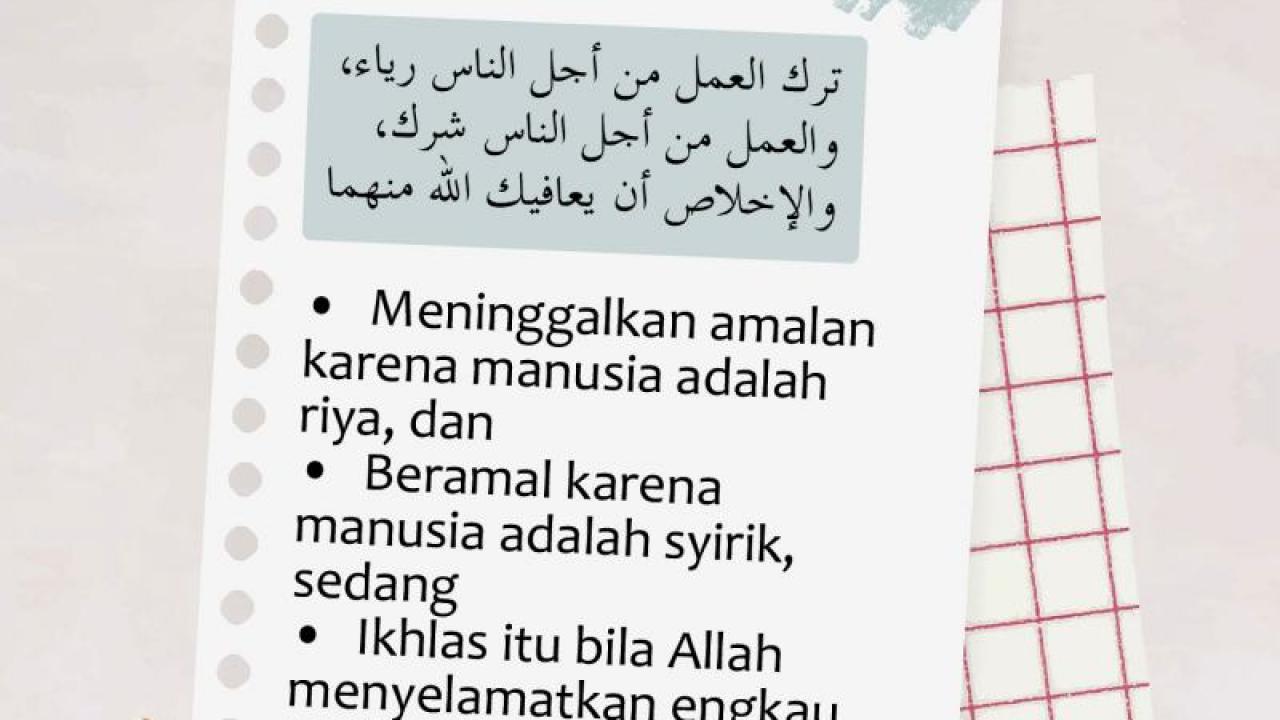 ترك العمل من أجل الناس رياء،
والعمل من أجل الناس شرك،
والإخلاص أن يعافيك الله منهما
• Meninggalkan amalan
karena manusia adalah
riya, dan
• Beramal karena
manusia adalah syirik,
sedang
• Ikhlas itu bila Allah
menyelamatkan engkau